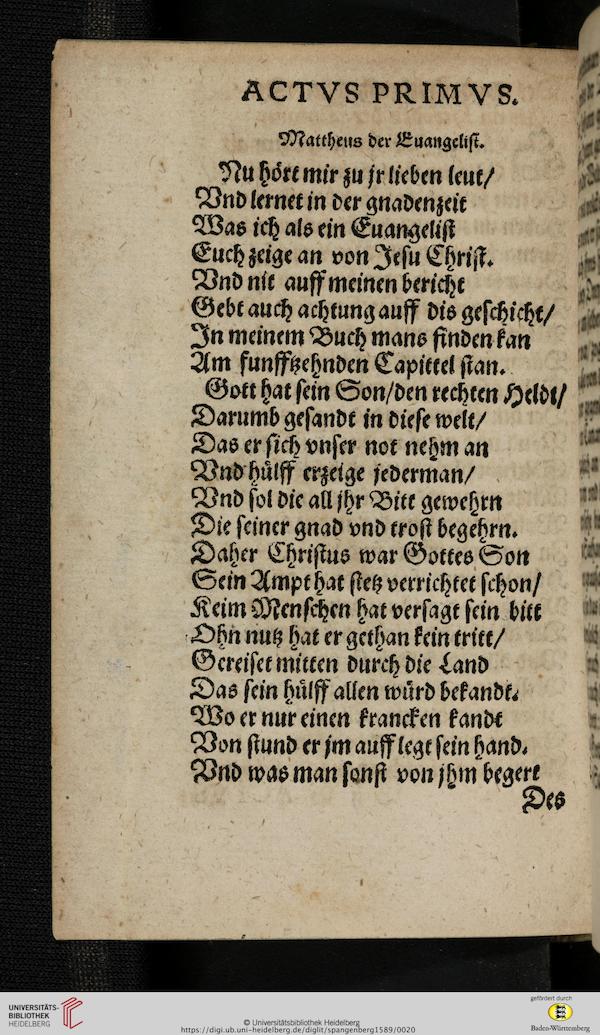 ACTVS PRIMVS.
Mattheus der Euangelist.
Nu hört mir zu jr lieben leut/
Vnd lernet in der gnadenzeit
Was ich als ein Euangelist
Euch zeige an von Jesu Christ.
Vnd nit auff meinen bericht
Gebt auch achtung auff dis geschicht/
In meinem Buch mans finden kan
Am funfftzehnden Capittel stan.
Gott hat sein Son/den rechten Heldt/
Darumb gesandt in diese welt/
Das er sich vnser not nehm an
Vnd hülff erzeige jederman/
Vnd sol die all jhr Bitt gewehrn
Die seiner gnad vnd trost begehrn.
Daher Christus war Gottes Son
Sein Ampt hat stetz verrichtet schon/
Keim Menschen hat versagt sein bitt
Ohn nutz hat er gethan kein tritt/
Gereiset mitten durch die Land
Das sein hülff allen würd bekandt.
Wo er nur einen krancken kandt
Von stund er jm auff legt sein hand.
Vnd was man sonst von jhm begert
Des
UNIVERSITÄTS-
BIBLIOTHEK
HEIDELBERG
© Universitätsbibliothek Heidelberg
https://digi.ub.uni-heidelberg.de/diglit/spangenberg1589/0020
gefördert durch
Baden-Württemberg